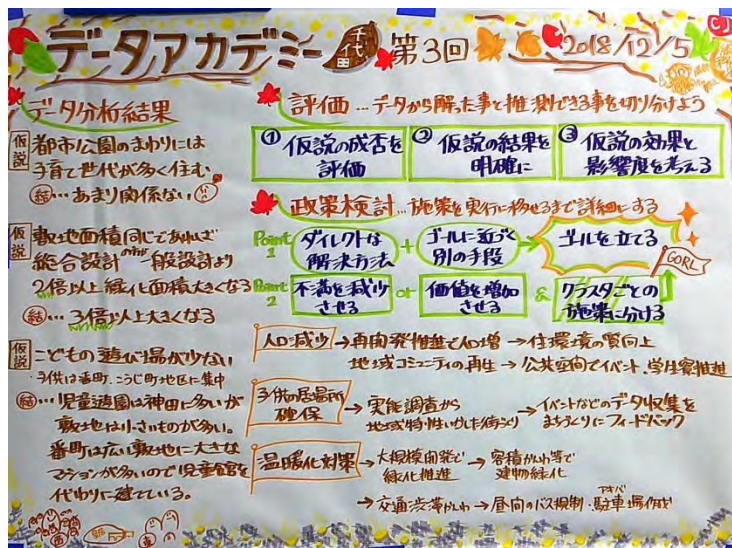 データアカデミー 千代田 第3回 2018/12/5
データ分析結果
仮説 都市公園のまわりには
子育て世代が多く住む
結…あまり関係ない
仮説 敷地面積同じであれば
総合設計の方が一般設計より
2倍以上緑化面積大きくなる
結…3倍以上大きくなる
仮説 こどもの遊び場が少ない
・子供は番町、こうじ町地区に集中
結…児童遊園は神田に多いが
敷地は小さいものが多い。
番町は広い敷地に大きな
マンションが多いので児童館を
代わりに建てている。
評価…データから解った事と推測できる事を切り分けよう
① 仮説の成否を
評価
② 仮説の結果を
明確に
③ 仮説の効果と
影響度を考える
政策検討…施策を実行に移せるまで詳細にする
Point 1 ダイレクトな
解決方法
+ ゴールに近づく
別の手段
ゴールを立てる
GORL
Point 2 不満を減少
させる
or 価値を増加
させる
& クラスタごとの
施策に分ける
人口減少→再開発推進で人口増→住環境の質向上
地域コミュニティの再生→公共空間でイベント、学生寮推進
子供の居場所
確保
→実態調査から
地域特性いかした街づくり
→イベントなどのデータ収集を
まちづくりにフィードバック
温暖化対策→大規模開発で
緑化推進
→容積かんわ等で
建物緑化
→交通渋滞かんわ→昼間のバス規制・駐車場作成